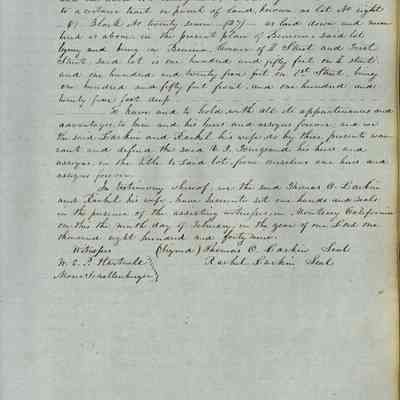 to a certain tract or parcel of land, known as lot No eight
- 8) - Block No twenty seven - (27) - as laid down and num
bered as above, in the present plan of Benicia, said lot
lying and being in Benicia, corner of D Street and First
Street, said lot is one hundred and fifty feet on D street,
and one hundred and twenty four feet on 1st Street, being
one hundred and fifty feet front, and one hundred and
twenty four feet deep
To have and to hold, with all its appurtenances and
advantages, to him and his heirs and assigns forever, and we
the said Larkin and Rachel his wife, do by these presents war
rant and defend the said his heirs and
assigns, in the title to said lot, from ourselves our heirs and
assigns forever
In testimony whereof, we the said Thomas O. Larkin
and Rachel his wife, have hereunto set our hands and seals
in the presence of the attesting witnesses, in Monterey California
on this the ninth day of February in the year of our Lord one
thousand eight hundred and forty nine
Witnesses (Signed) Thomas O. Larkin Seal
W. E. P. Hartnell Rachel Larkin Seal
Moses Schallenberger